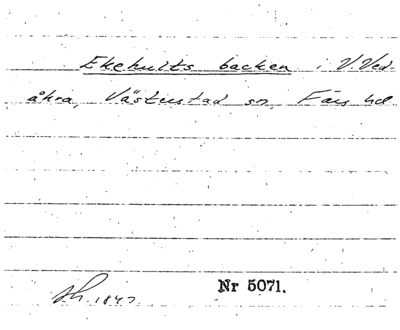 Ekehults backen i V. Ved-
åkra, Västustad sn, Färs hd
Nr 5071.
1847